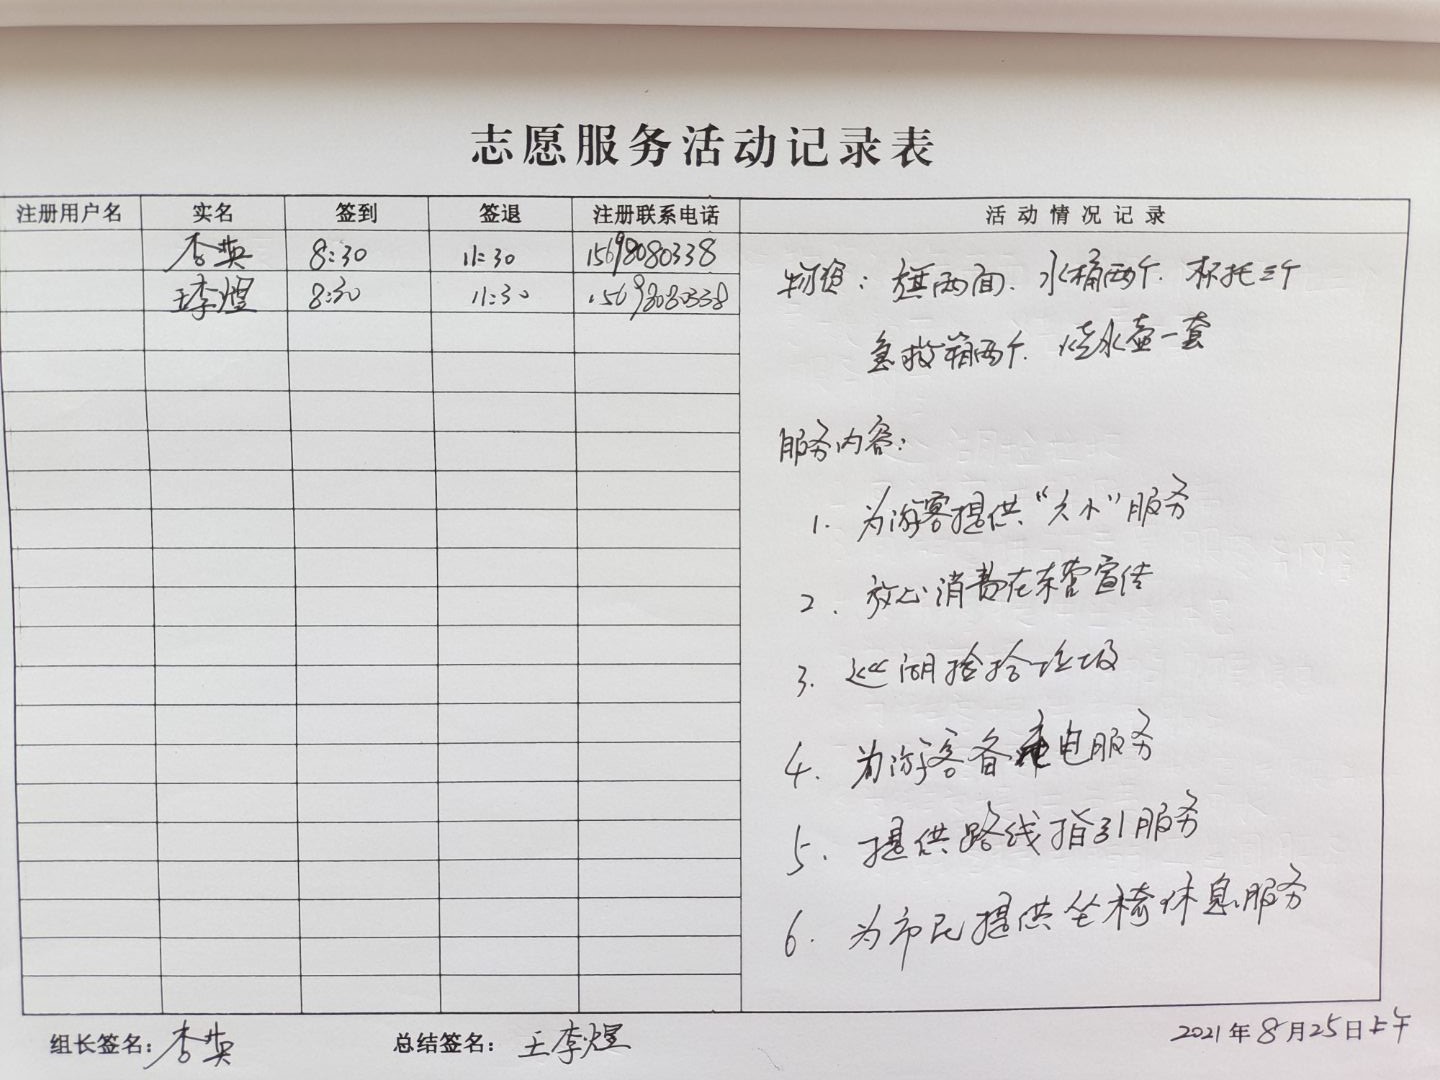 志愿服务活动记录表
注册用户名 实名 签到 签退 注册联系电话 活动情况记录
李英 8:30 11:30 15698080338
王李煜 8:30 11:30 15698080338
物资：旗两面、水桶两个、杯托三个
急救箱两个、烧水壶一套
服务内容：
1. 为游客提供“大小”服务
2. 放心消费在东营宣传
3. 巡湖捡拾垃圾
4. 为游客备电服务
5. 提供路线指引服务
6. 为市民提供坐椅休息服务
组长签名：李英 总结签名：王李煜 2021年8月25日上午